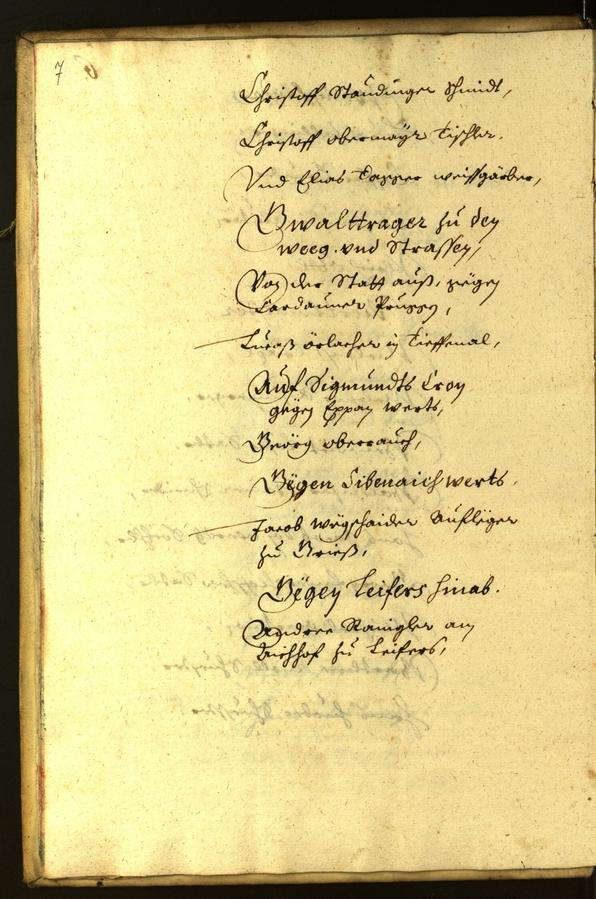 7
Christoff Staudinger Schmidt,
Christoff obermayr Tischler.
Vnd Elias Tapper weissgärber,
Gwalttrager zu den
weeg. vnd Strassen,
Von der Statt auß, gegen
Cardauner Pruggn,
Lucaß örlacher in Tieffenal,
Auf Sigmundts Cron
gegen Eppan werts,
Geörg oberrauch,
Gegen Sibenaich werts.
Jacob wegschaider Aufleger
zu Grieß,
Gegen Leifers hinab.
Andree Ranigler am
Aichhof zu Leifers,